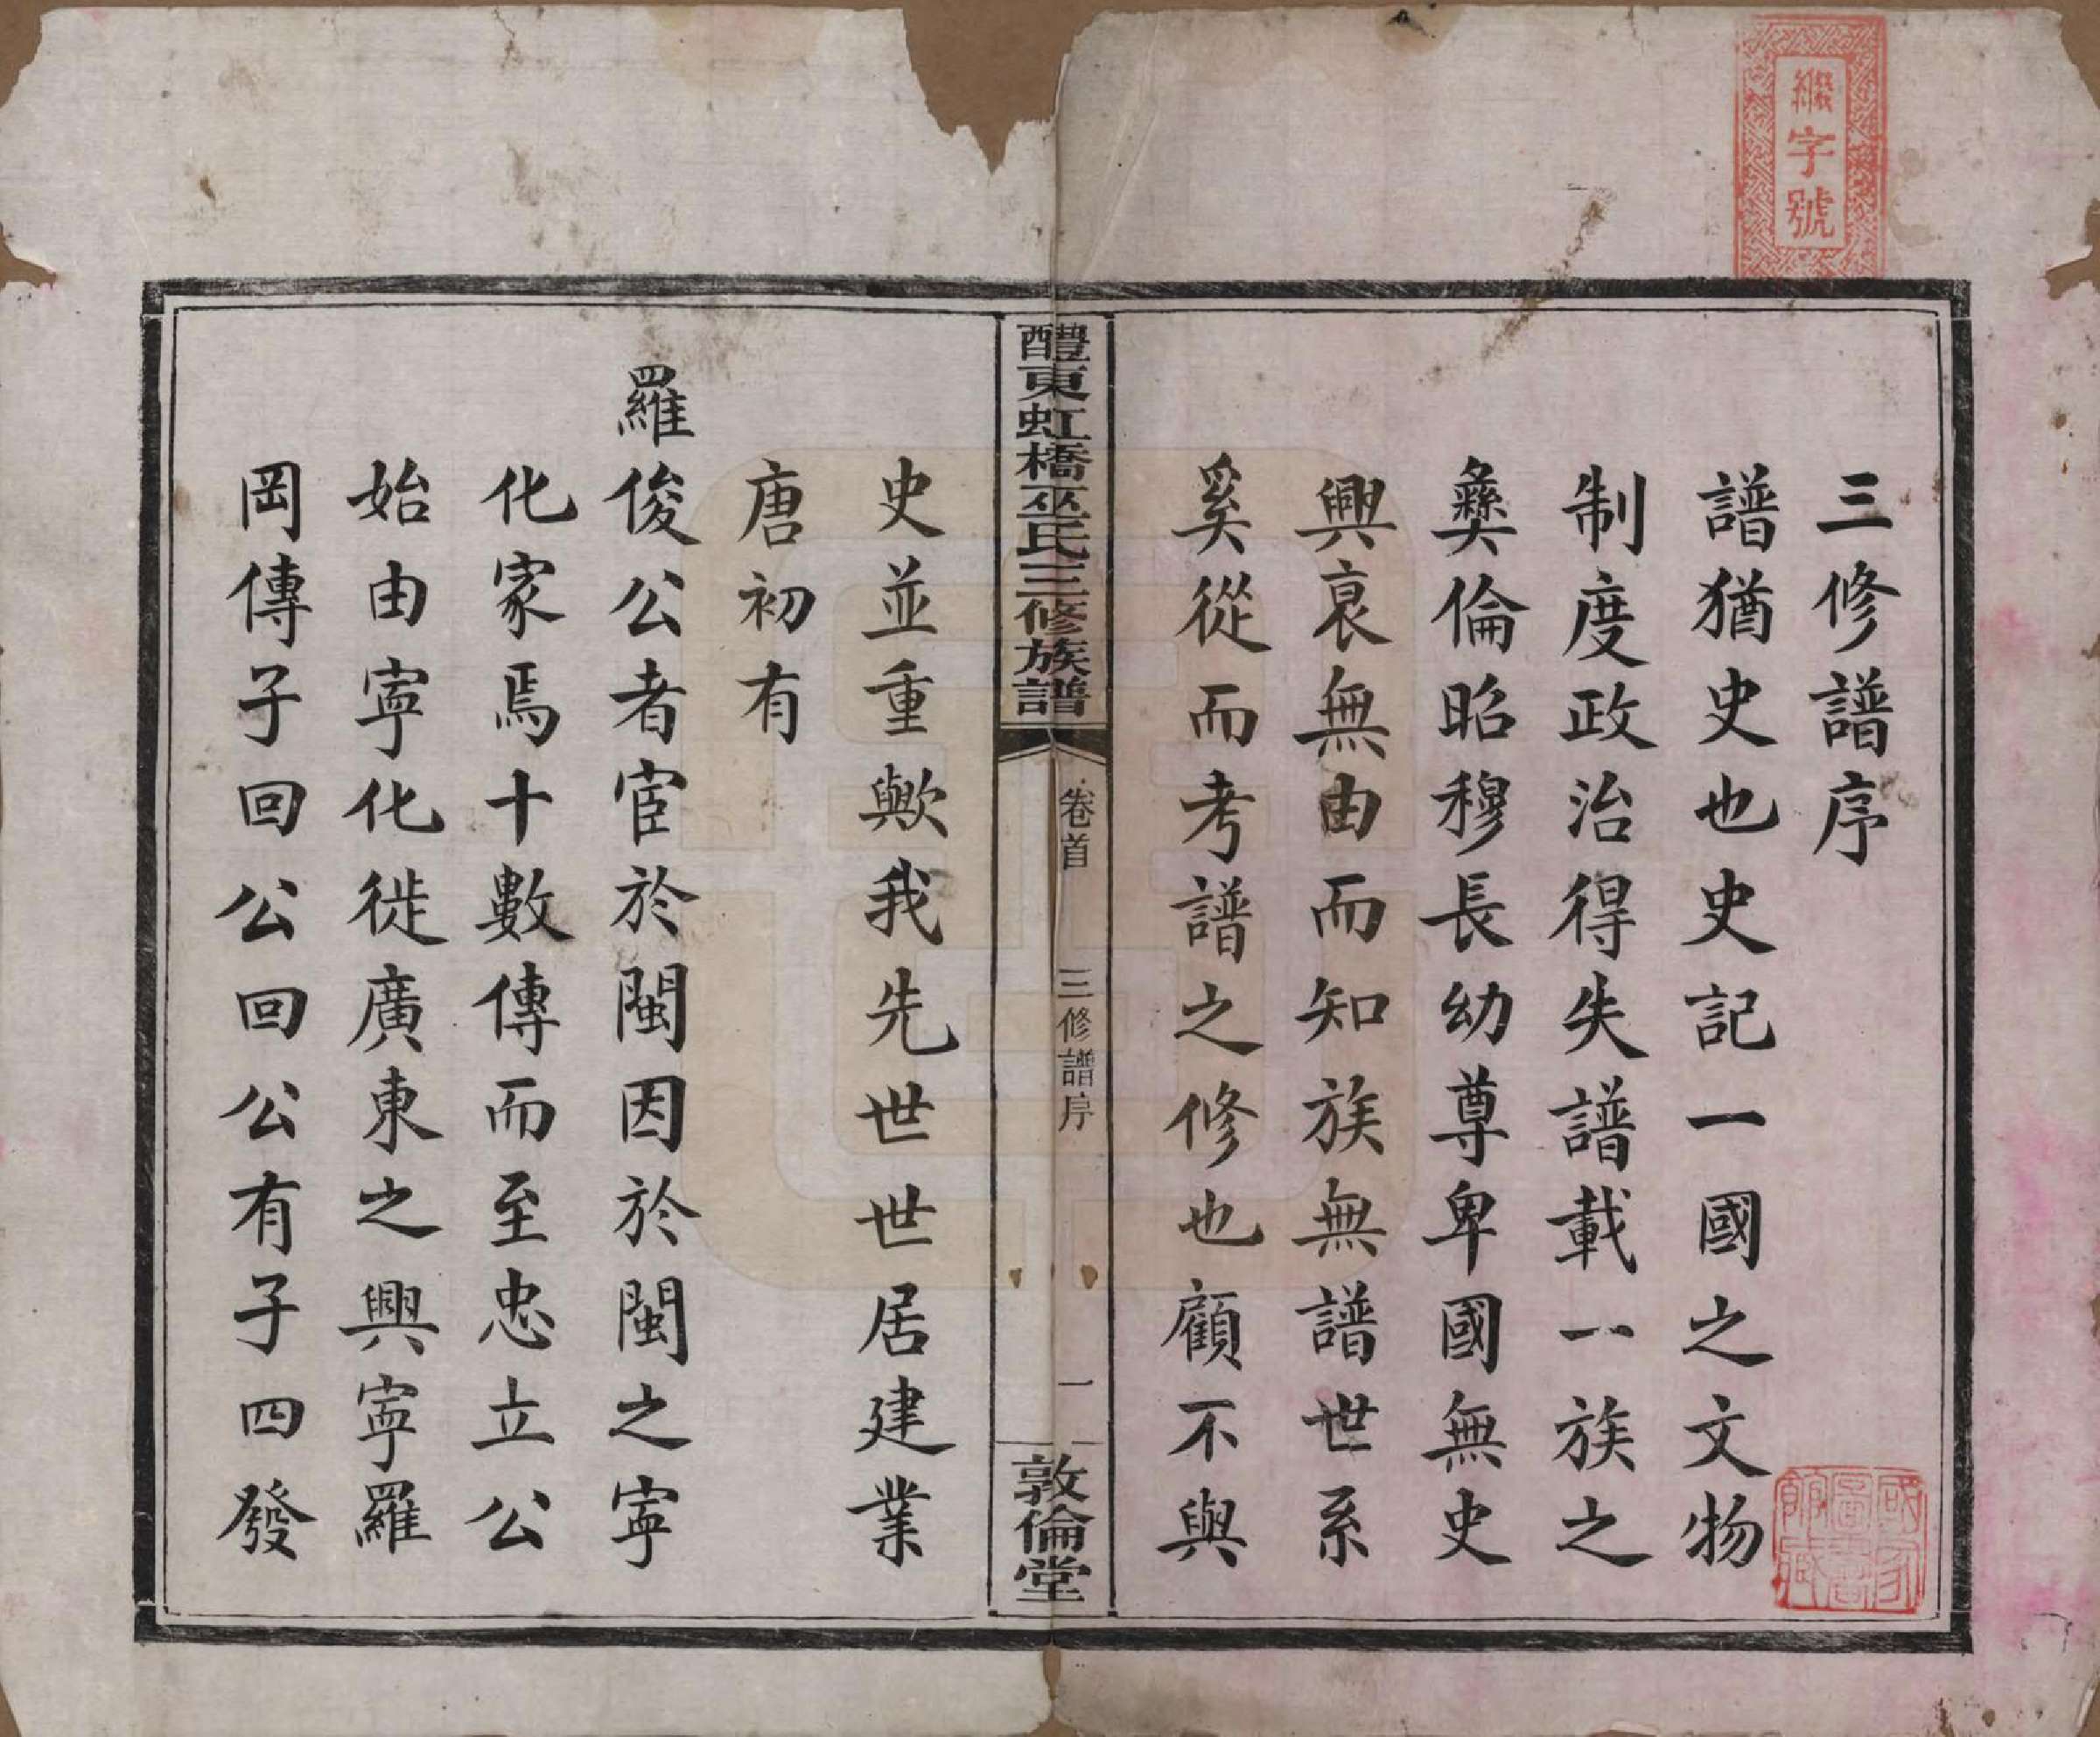 三修譜序
譜猶史也史記一國之文物
制度政治得失譜載一族之
彝倫昭穆長幼尊卑國無史
興衰無由而知族無譜世系
奚從而考譜之修也顧不與
醴東虹橋巫氏三修族譜
卷首
三修譜序
一
敦倫堂
史並重歟我先世世居建業
唐初有
羅俊公者宦於閩因於閩之寧
化家焉十數傳而至忠立公
始由寧化徙廣東之興寧羅
岡傳子回公回公有子四發
字號
國家圖書館藏